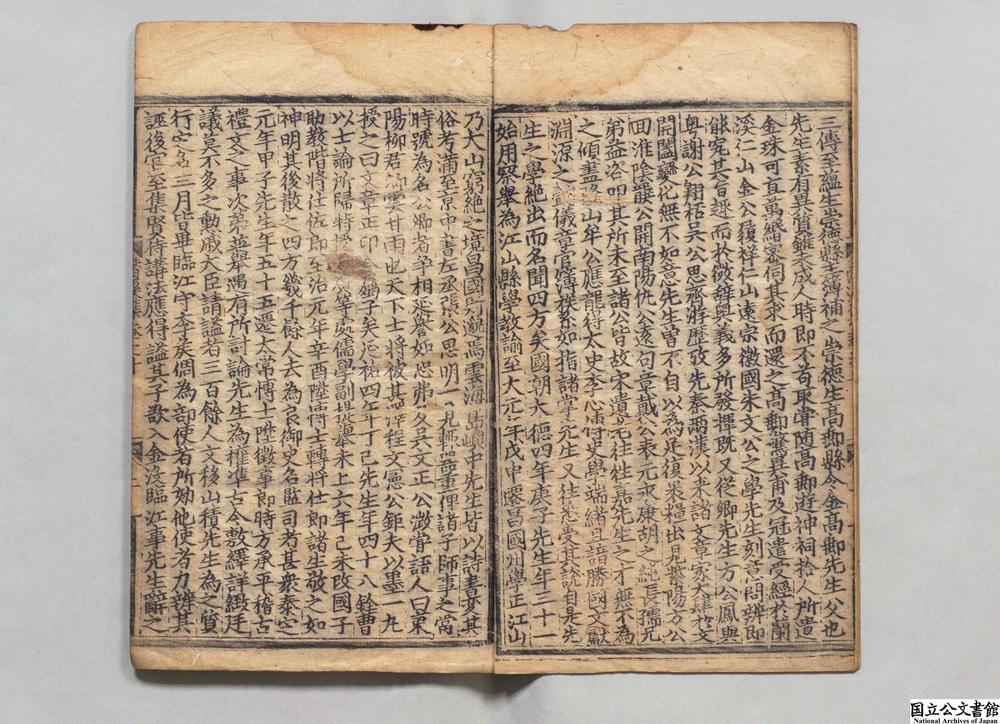 三傳至蘊生崇德縣主簿補之崇德生高郵縣令金高郵先生父也
先生素有異質雖未成人時即不苟取嘗隨高郵遊神祠拾人所遺
金珠可直萬緡密伺其求而還之高郵驚異甫及冠遣受經於蘭
溪仁山金公履祥仁山遠宗徽國朱文公之學先生刻意問辨即
能究其旨趣而於微辭奧義多所發揮既又從鄉先生方公鳳與
粤謝公翱括吳公思齊游歷攷先秦兩漢以來諸文章家大肆於文
開闔變化無不如意先生曾不自以為足復裹糧出見紫陽方公
回淮陰龔公開南陽仇公遠句章戴公表元永康胡公之純長孺兄
弟益咨叩其所未至諸公皆故宋遺老往往嘉先生之才無不為
之傾盡隆山牟公應龍得太史李心傳史學端緒且諳勝國文獻
淵源之懿儀章官簿族系如指諸掌先生又往悉受其說自是先
生之學絕出而名聞四方矣國朝大德四年庚子先生年三十一
始用察舉為江山縣學教諭至大元年戊申遷昌國州學正江山
乃大山窮絕之境昌國則邈焉雲海島嶼中先生皆以詩書變其
俗考滿至京中書左丞張公思明一見輒器重俾諸子師事之當
時號為名公卿者爭相延譽如恐弗及吳文正公澂嘗語人曰東
陽柳君如雲甘雨也天下士將被其澤程文憲公鉅夫以墨一九
授之曰文章正印 屬子矣延祐四年丁巳先生年四十八銓曹
以士論所歸特授 等處儒學副提舉未上六年己未改國子
助教階將仕佐郎至治元年辛酉陞博士轉將仕郎諸生敬之如
神明其後散之四方幾千餘人去為良御史名監司者甚衆泰定
元年甲子先生年五十五遷太常博士陞徵事郎時方承平稽古
禮文之事次第並舉遇有所討論先生為榷準古今敷繹詳緻廷
議莫不多之勳戚大臣請謚者三百餘人文移山積先生為之質
行定名三月皆畢臨江守李侯倜為部使者所劾他使者力辨其
誣後官至集賢侍講法應得謚其子敬入金沒臨江事先生辭之
国立公文書館
National Archives of Japan